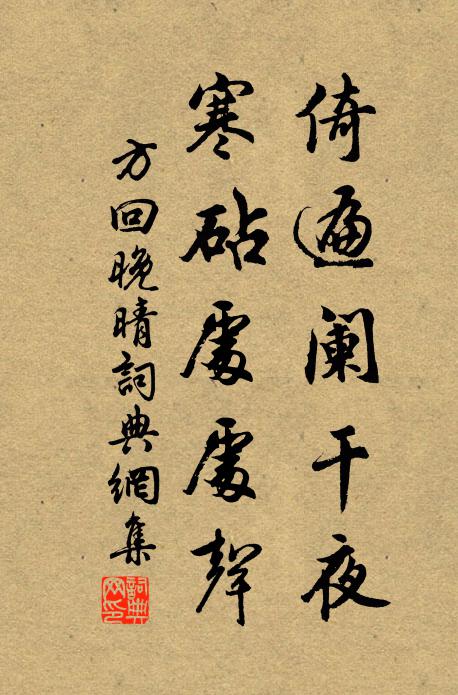 倚遍阑干夜
寒砧處處聲
方回晚晴詞典網集
詞典网印